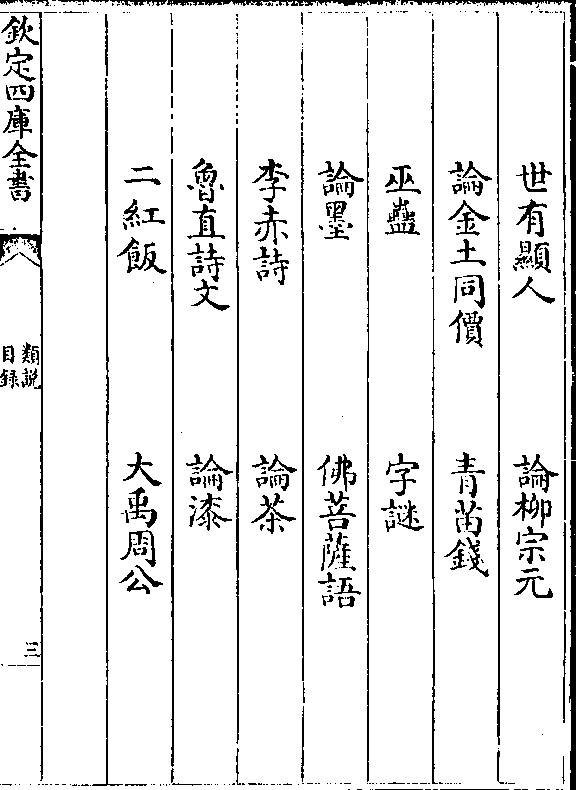 世有顯人　論柳宗元
論金土同價　青苗錢
巫蠱　字謎
論墨　佛菩薩語
李赤詩　論茶
魯直詩文　論漆
二紅飯　大禹周公
欽定四庫全書
類說
目録
三